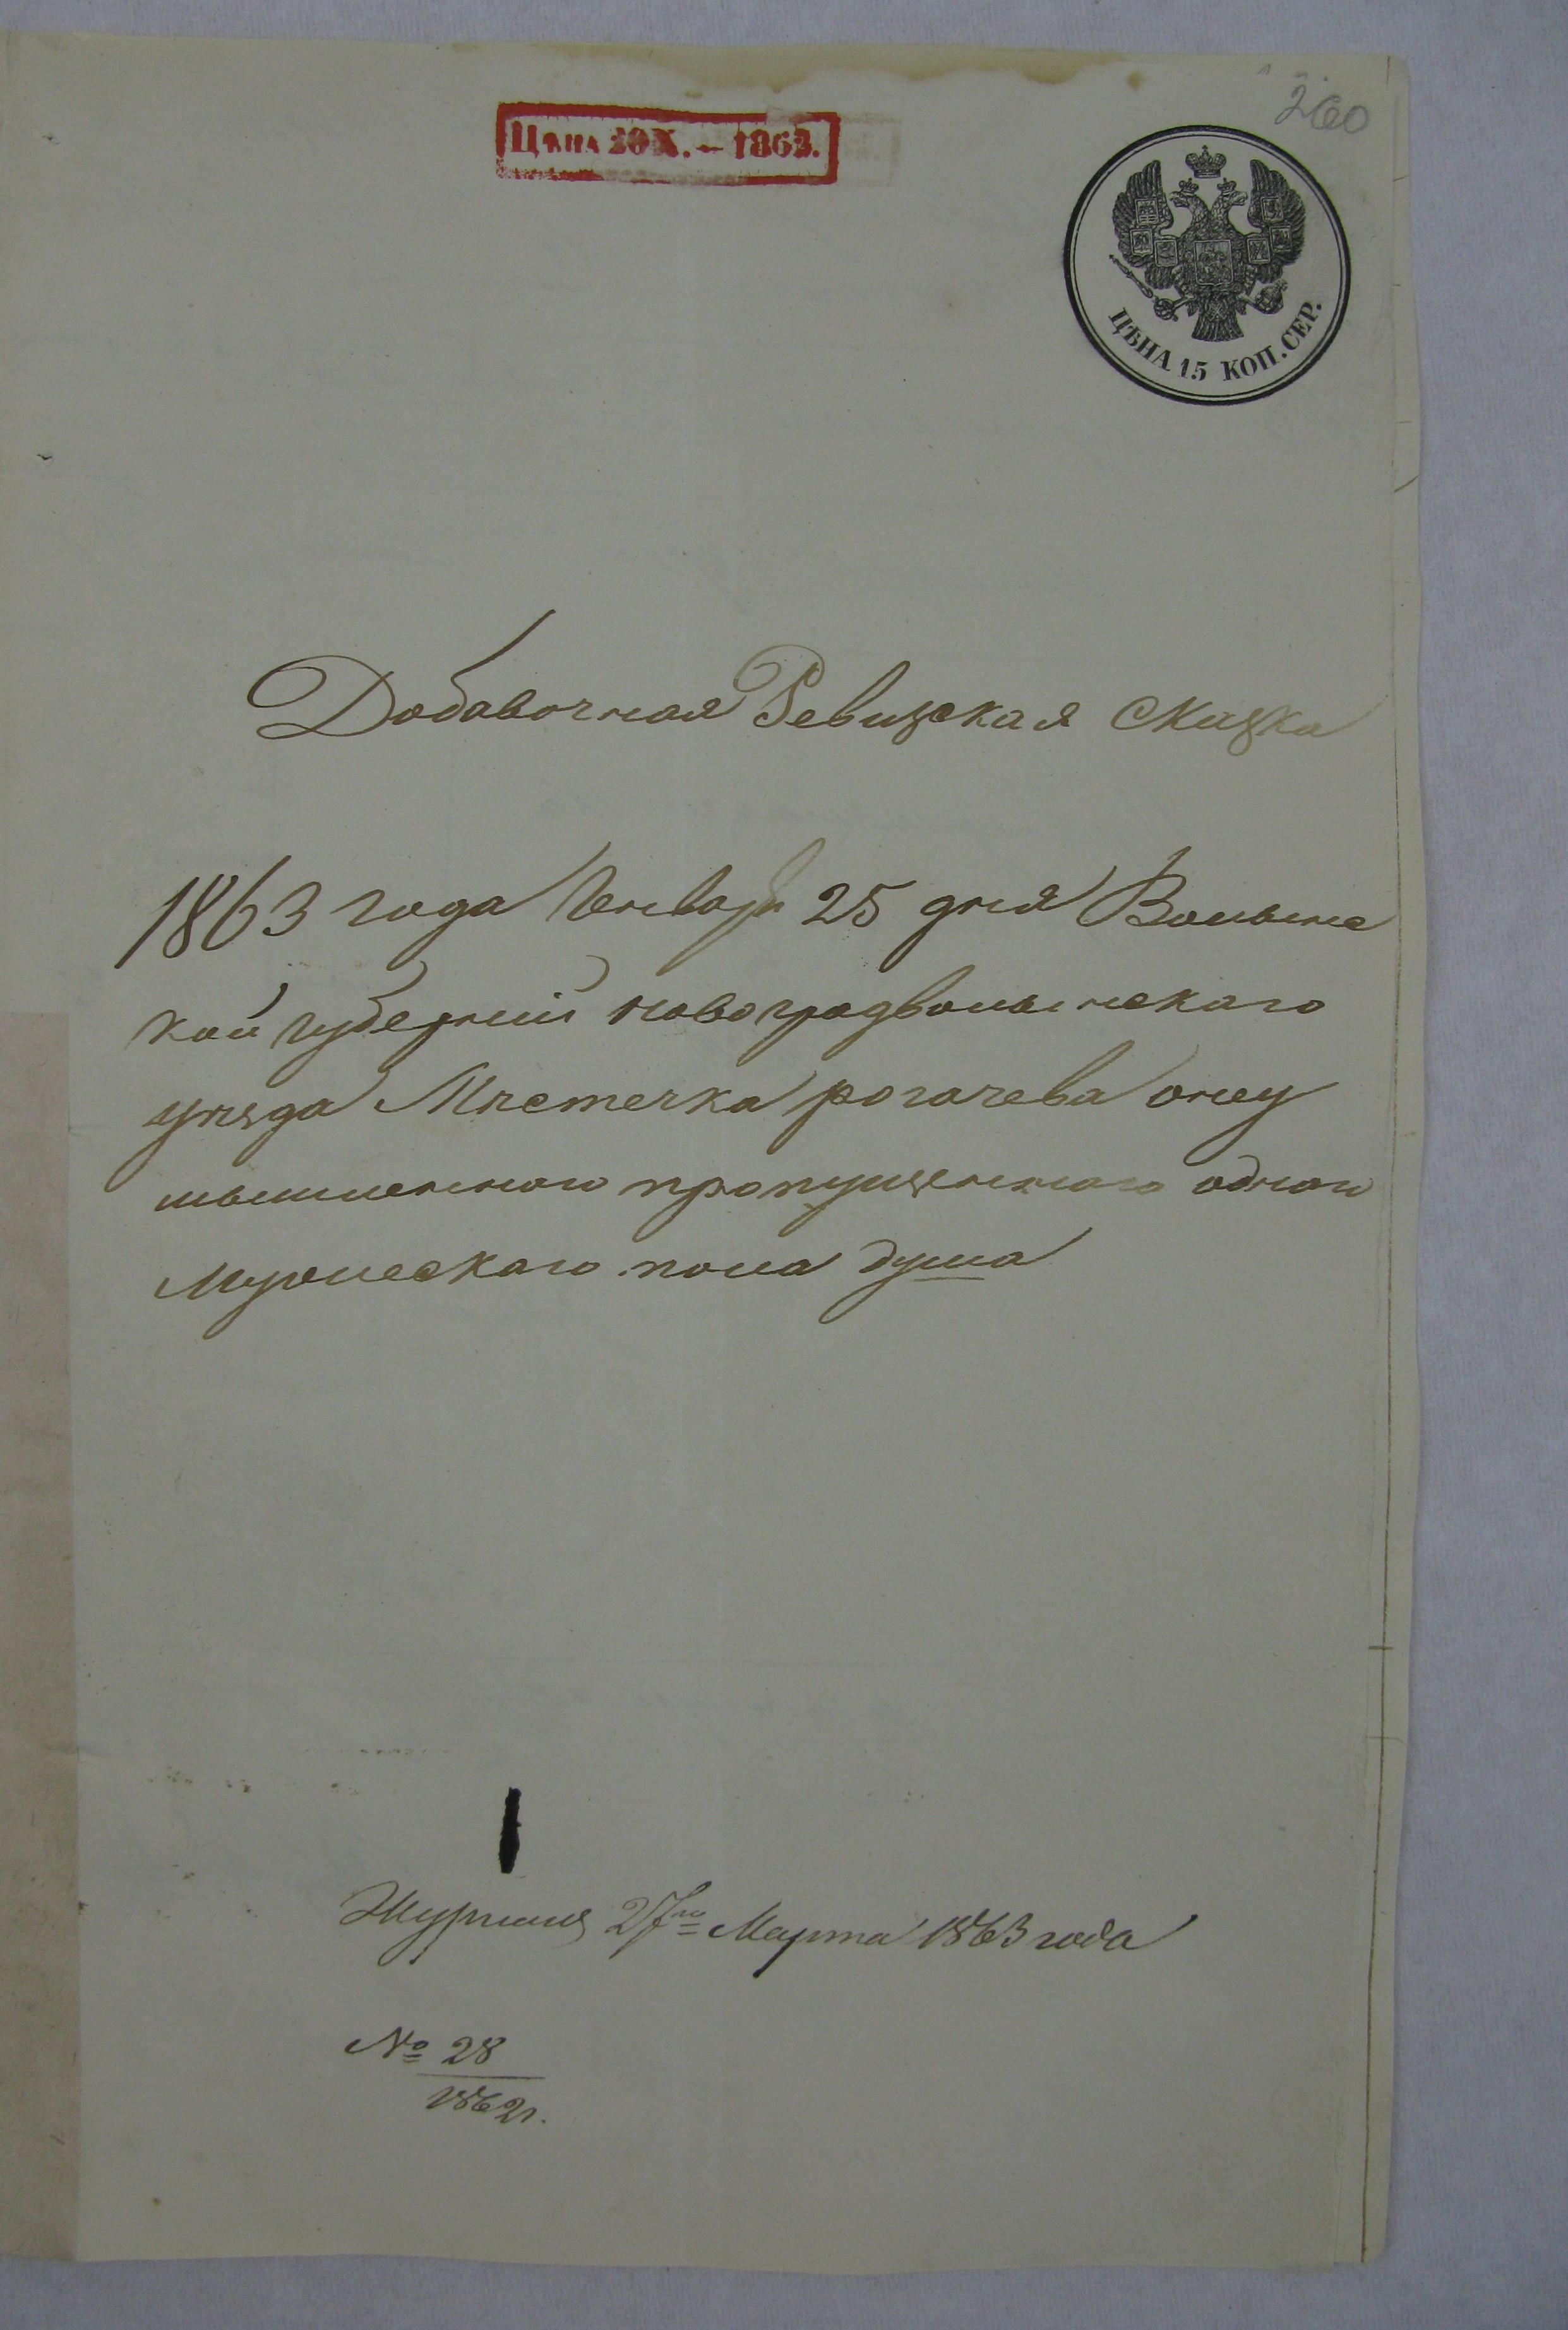 260
Цѣна 20 К. — 1863.
ЦѢНА 15 КОП. СЕР.
Добавочная Ревизская Сказка
1863 года Генваря 25 дня Волынс
кой губерніи новоградволынскаго
уѣзда Мѣстечка рогачева онеу
мышленного пропущенного одного
Мужескаго пола душа
27го Марта 1863 года
№ 28
1862г.